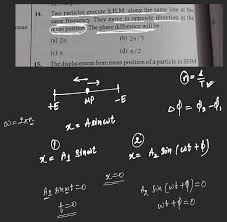 14. Two particles execute S.H.M. along the same line at the
same frequency. They move in opposite direction at the
mean position. The phase difference will be
(a) 2π (b) 2π/3
(c) π (d) π/2
15. The displacement from mean position of a particle in SHM
+E MP -E
ω = 2πn
n = 1/T
Δϕ = ϕ₂ - ϕ₁
x = A sin ωt
① ②
x = A₁ sin ωt
x = A₂ sin (ωt + ϕ)
x = 0
A₁ sin ωt = 0
t = 0
A₂ sin (ωt + ϕ) = 0
ωt + ϕ = 0